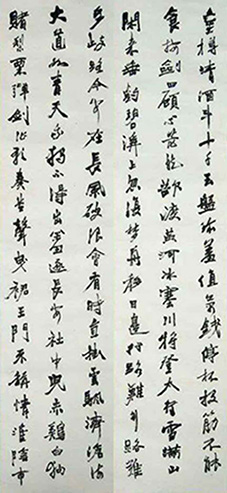 金樽清酒斗十千玉盤珍羞值萬錢停杯投筯不能
食拔劍四顧心茫然欲渡黃河冰塞川將登太行雪滿山
閑來垂釣碧溪上忽復舟日邊行路難行路難
多歧路今安在長風破浪會有時直掛雲帆濟滄海
大道如青天我獨不得出羞逐長安社中兒赤雞白狗
賭梨栗彈劍作歌奏苦聲曳裾王門不稱情淮陰市